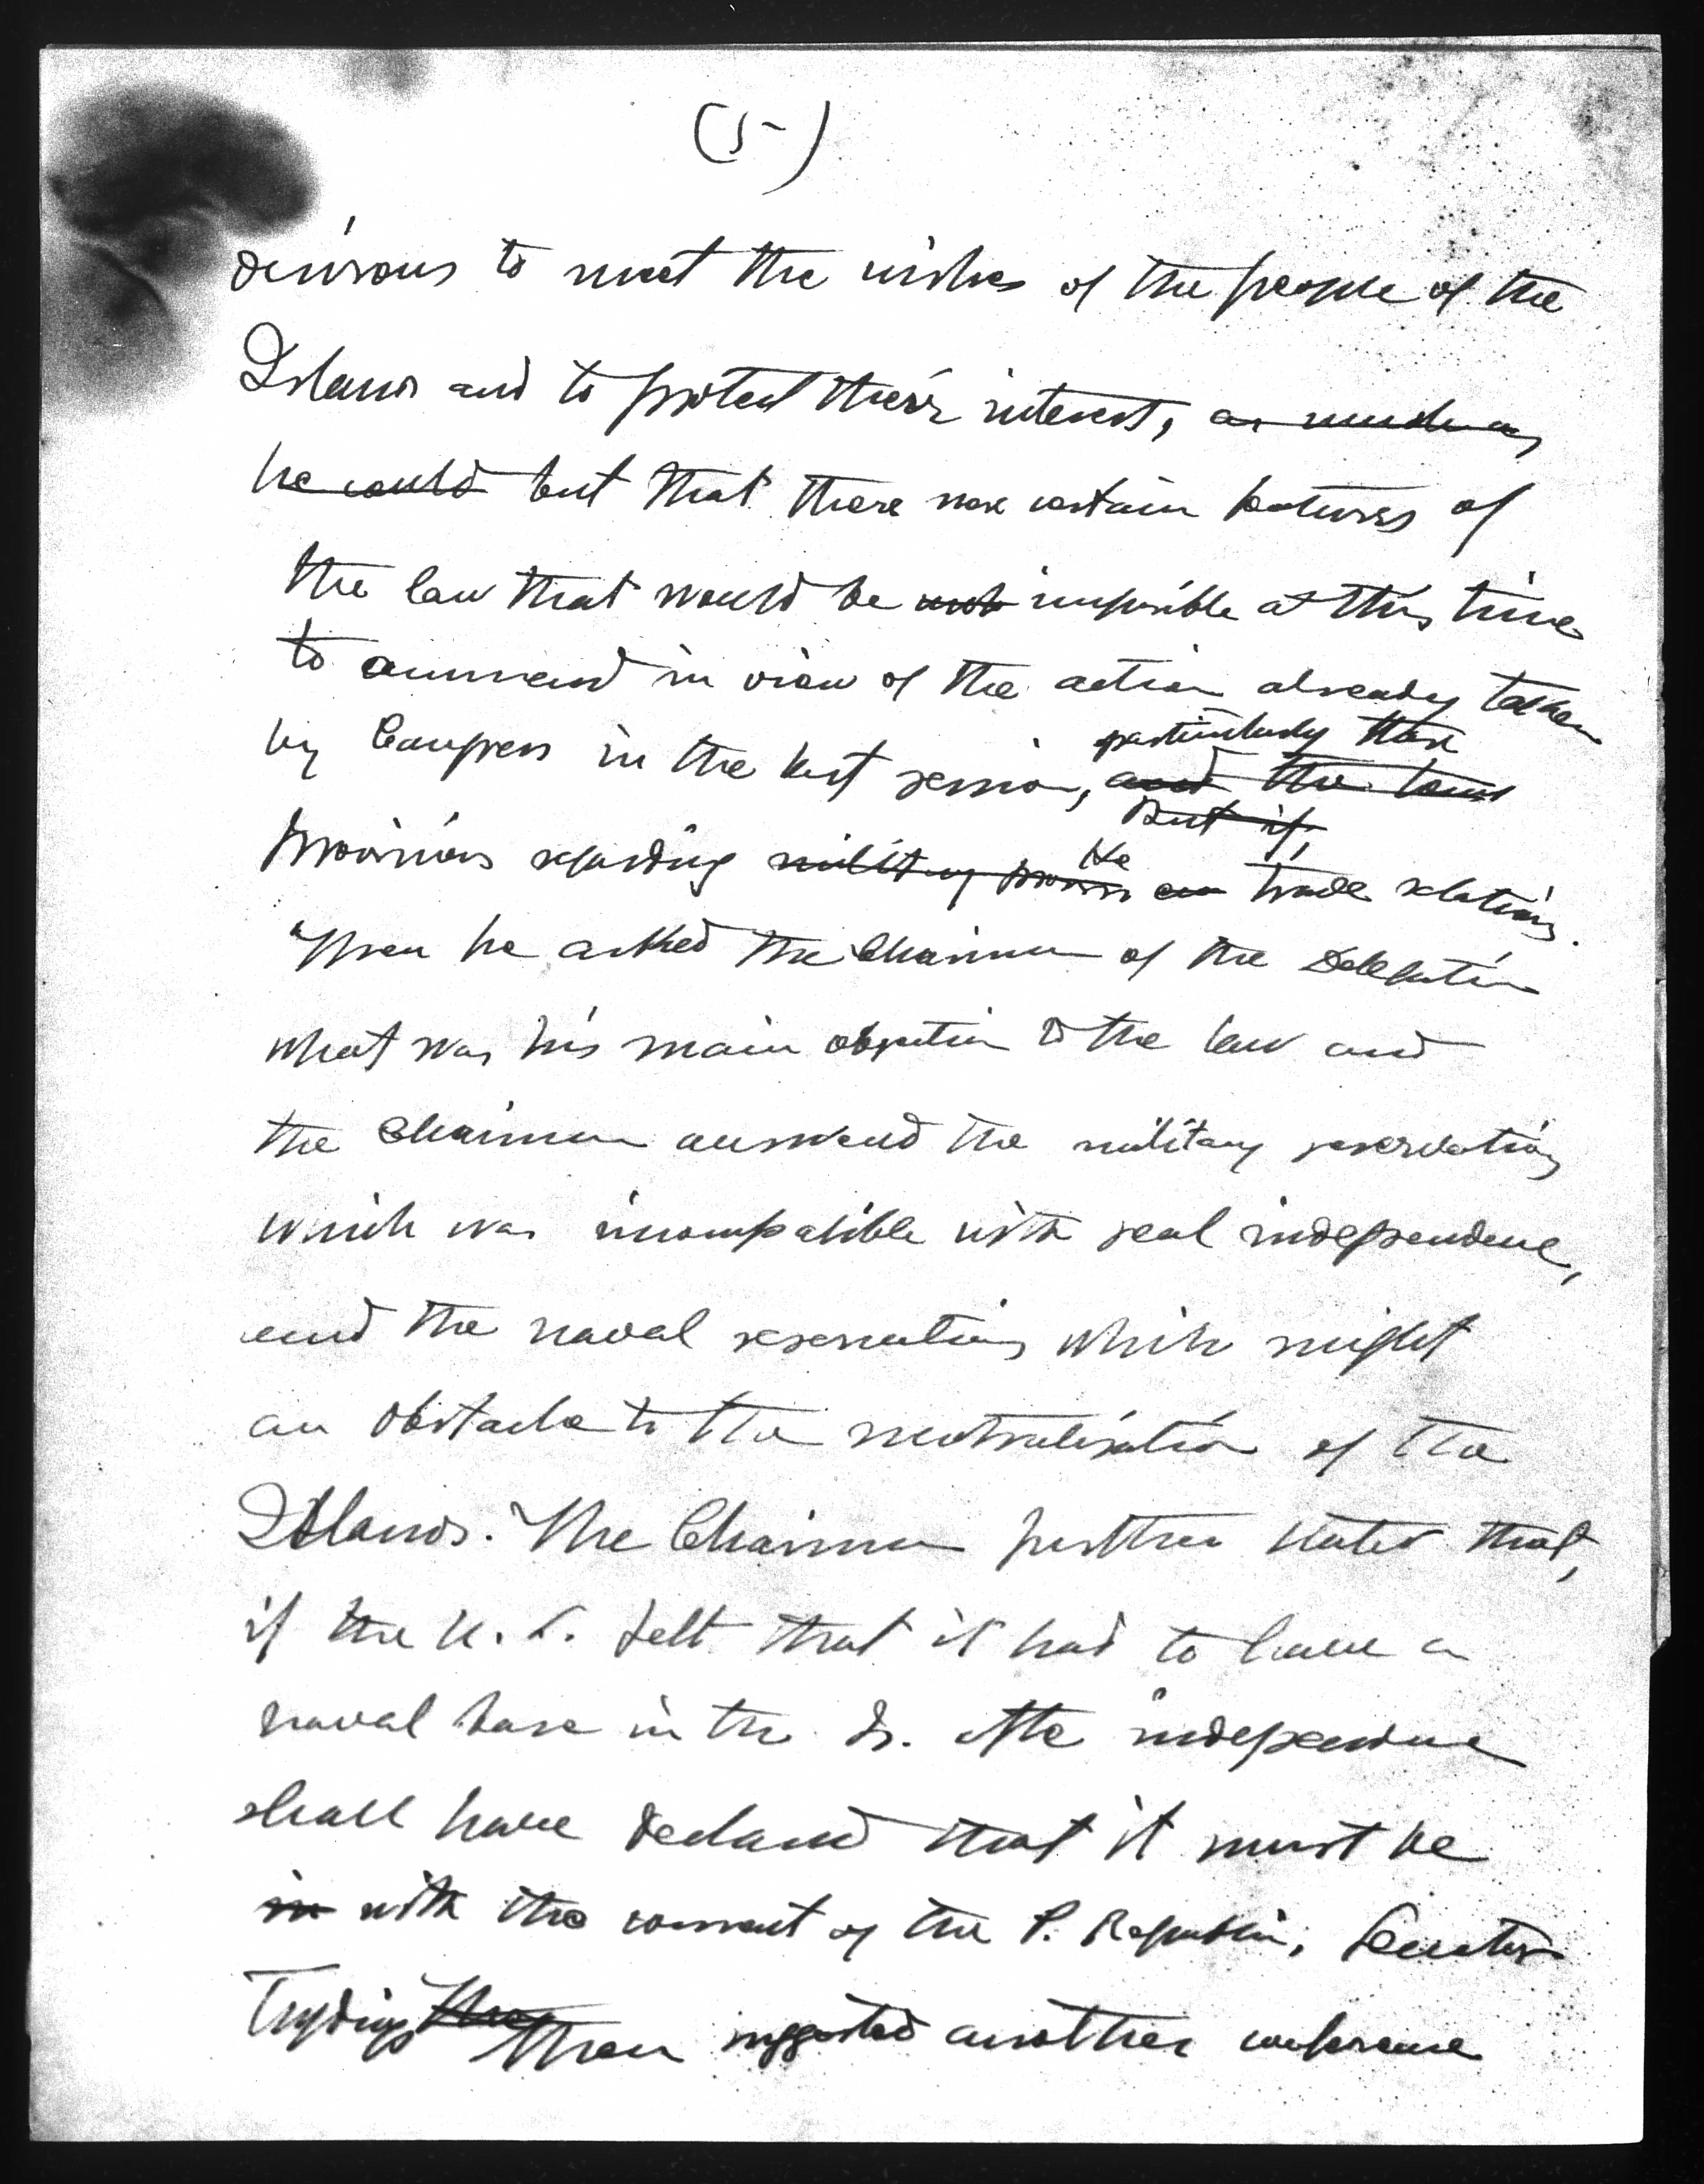 (5)
desirous to meet the wishes of the people of the
Islands and to protect their interests, as much as
he could but that there were certain features of
the law that would be not impossible at this time
to ammend in view of the action already taken
by Congress in the last session, and the
particularly those
But if,
provisions regarding military the trade relations.
Then he asked the Chairman of the Delegation
what was his main objection to the law and
the Chairman answered the military reservations
which was incompatible with real independence,
and the naval reservations which might
an obstacle to the neutralisation of the
Islands. The Chairman further stated that,
if the U. S. felt that it had to have a
naval base in the Is. after independence
shall have declared that it must be
in with the consent of the P. Republic, Senator
Tydings then suggested another conference